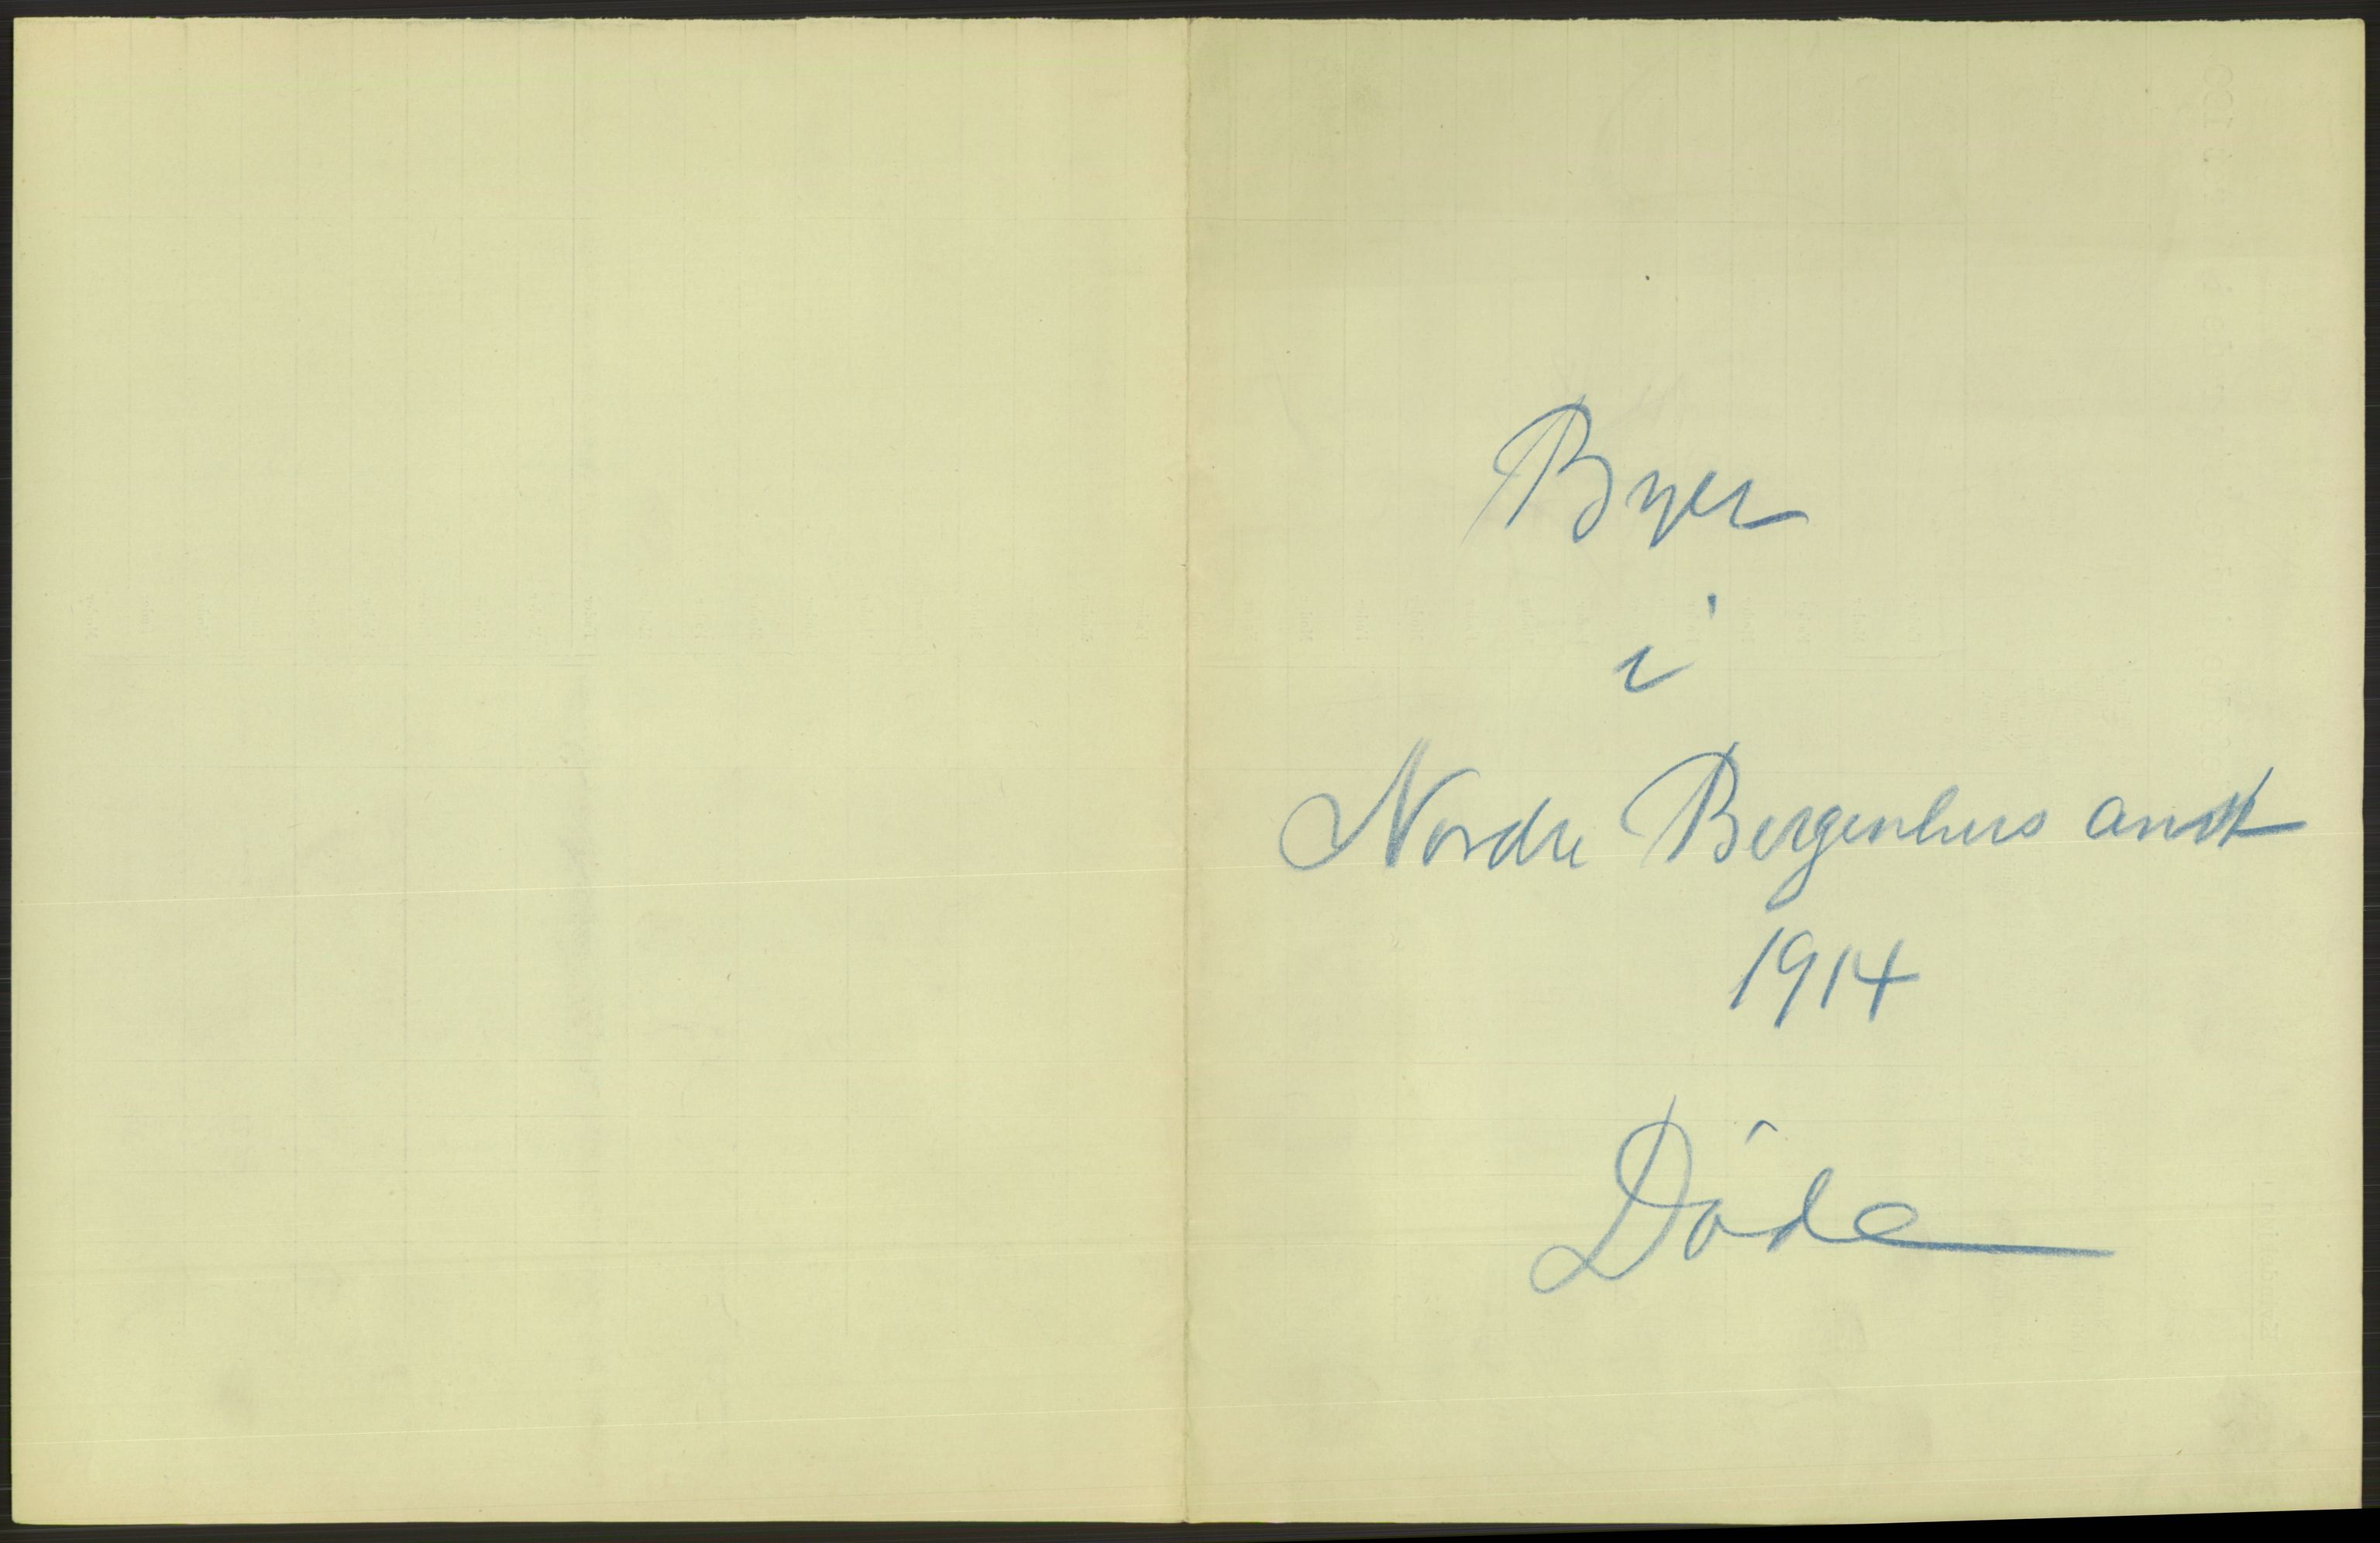 Byer
i
Nordre Bergenhus amt
1914
Døde